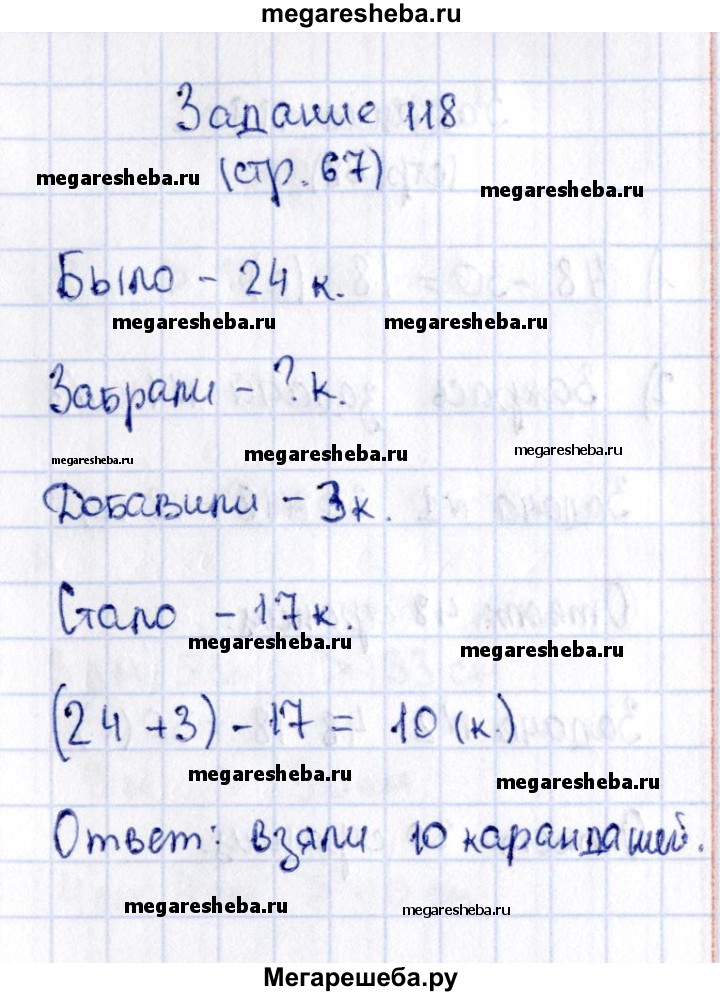 megaresheba.ru
Задание 118
megaresheba.ru (стр. 67) megaresheba.ru
Было - 24 к.
megaresheba.ru megaresheba.ru
Забрали - ? к.
megaresheba.ru megaresheba.ru megaresheba.ru
Добавили - 3 к.
Стало - 17 к.
megaresheba.ru megaresheba.ru
(24 + 3) - 17 = 10 (к.)
megaresheba.ru megaresheba.ru
Ответ: взяли 10 карандашей.
megaresheba.ru megaresheba.ru
Мегарешеба.ру